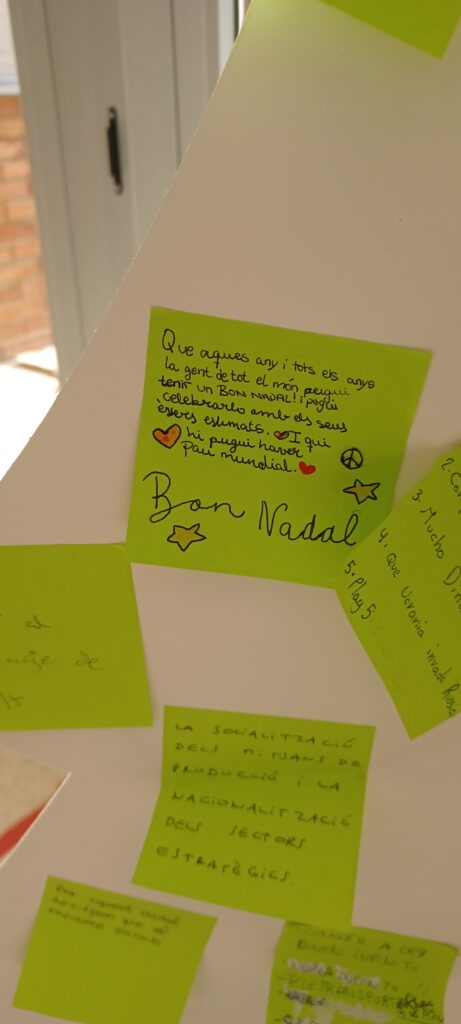 Que aques any i tots els anys
la gent de tot el món pugui
tenir un BON NADAL! i pugui
celebrarlo amb els seus
èssers estimats. I qui
hi pugui haver
Pau mundial.
Bon Nadal
el
de
3. Mucho Din
4. Que Ucrania invade Rusia
5. Play 5
LA SOCIALITZACIÓ
DELS MITJANS DE
PRODUCCIÓ I LA
NACIONALITZACIÓ
DELS SECTORS
ESTRATÈGICS.
Per aquest nadal
desitjem que el
racisme
CONOCER A CR7
DINERO INFINITO